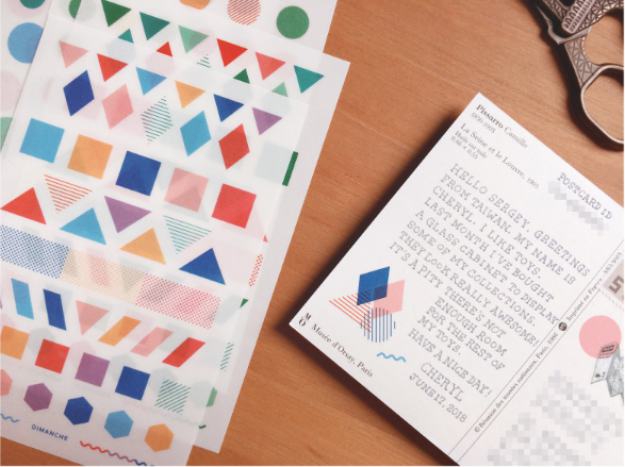 Pissarro Camille
La Seine et le Louvre, 1903
POSTCARD ID
HELLO SERGEY. GREETINGS
FROM TAIWAN. MY NAME IS
CHERYL. I LIKE TOYS.
LAST MONTH I'VE BOUGHT
A GLASS CABINET TO DISPLAY
SOME OF MY COLLECTIONS.
THEY LOOK REALLY AWESOME!
IT'S A PITY THERE'S NOT
ENOUGH ROOM
FOR THE REST OF
MY TOYS.
HAVE A NICE DAY!
CHERYL
JUNE 17, 2018
M
O
Musée d'Orsay, Paris
DIMANCHE